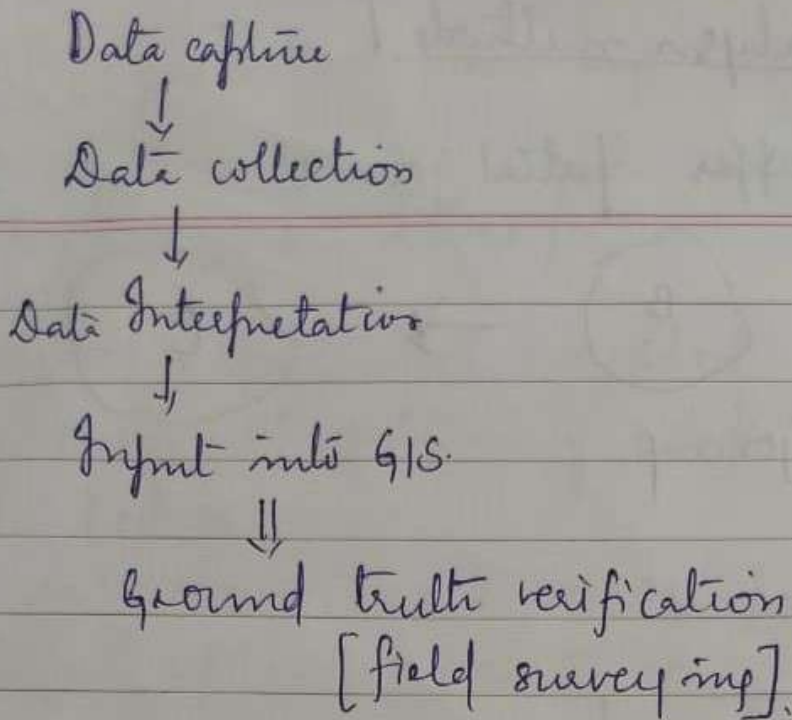 Data capture
↓
Data collection
↓
Data Interpretation
↓
Input into GIS.
⇓
Ground truth verification
[field surveying].